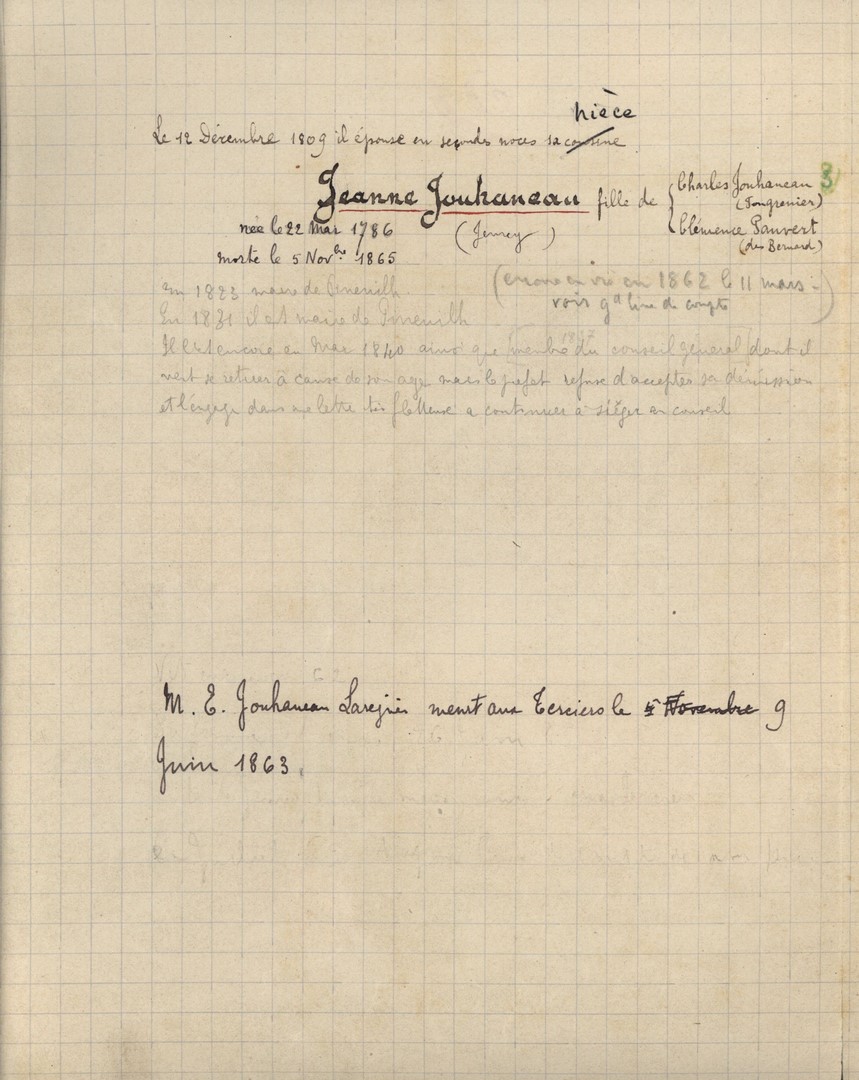 nièce
Le 12 Décembre 1809 il épouse en secondes noces sa cousine
Jeanne Jouhaneau fille de Charles Jouhaneau 3
(Fongrenier)
Clémence Pauvert
(des Bernard)
née le 22 Mai 1786 (Jenny)
morte le 5 Novbre 1865
(encore en vie en 1862 le 11 mars
voir gd livre de compte)
En 1823 maire de
En 1831 il est maire de
Il l'est encore en Mai 1840 ainsi que membre du conseil général dont il
1837
veut se retirer à cause de son age mais le prefet refuse d'accepter sa démission
et l'engage dans une lettre très flatteuse a continuer à siéger au conseil
M. E. Jouhaneau meurt aux Terciers le Novembre 9
Juin 1863.